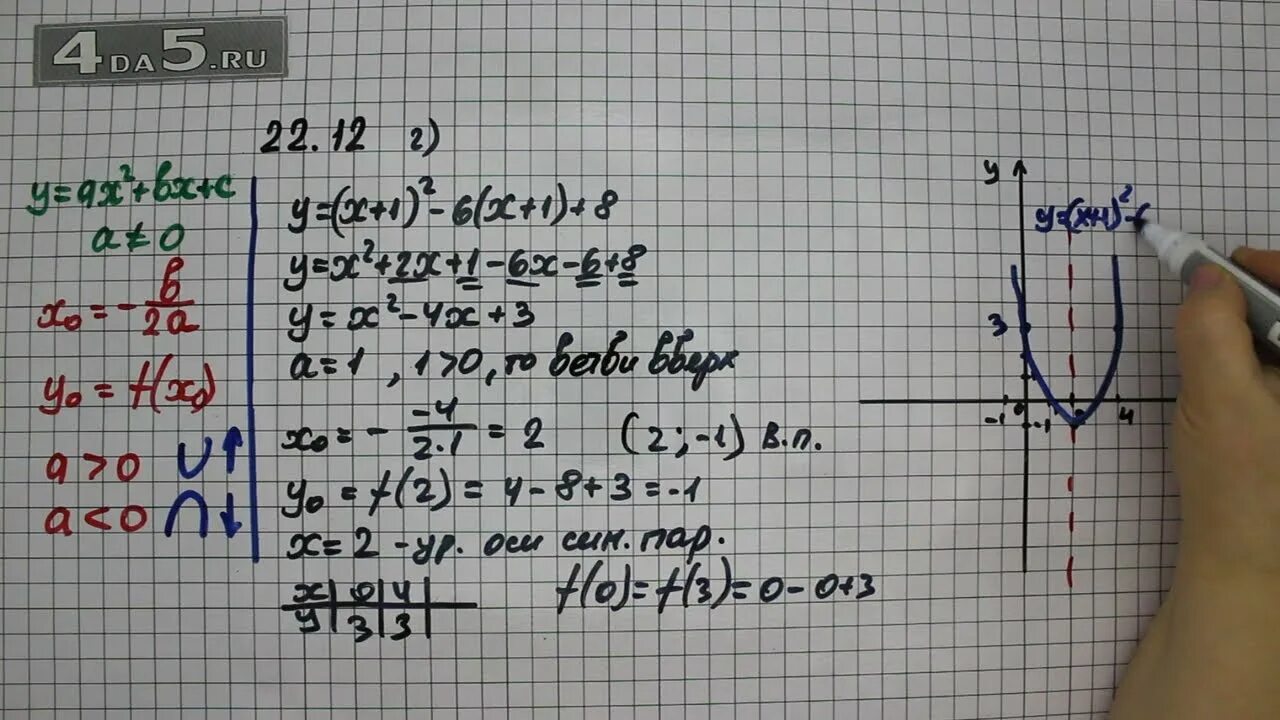 4DA5.RU
22.12 г)
y=ax²+bx+c
a≠0
x₀=-b/2a
y₀=f(x₀)
a>0 ∪↑
a<0 ∩↓
y=(x+1)²-6(x+1)+8
y=x²+2x+1-6x-6+8
y=x²-4x+3
a=1, 1>0, то ветви вверх
x₀=--4/2·1=2 (2;-1) в.п.
y₀=f(2)=4-8+3=-1
x=2-ур. оси сим. пар.
x|0|4|
y|3|3|
f(0)=f(3)=0-0+3
y
y=(x+1)²-6
3
-1 0 4
-1